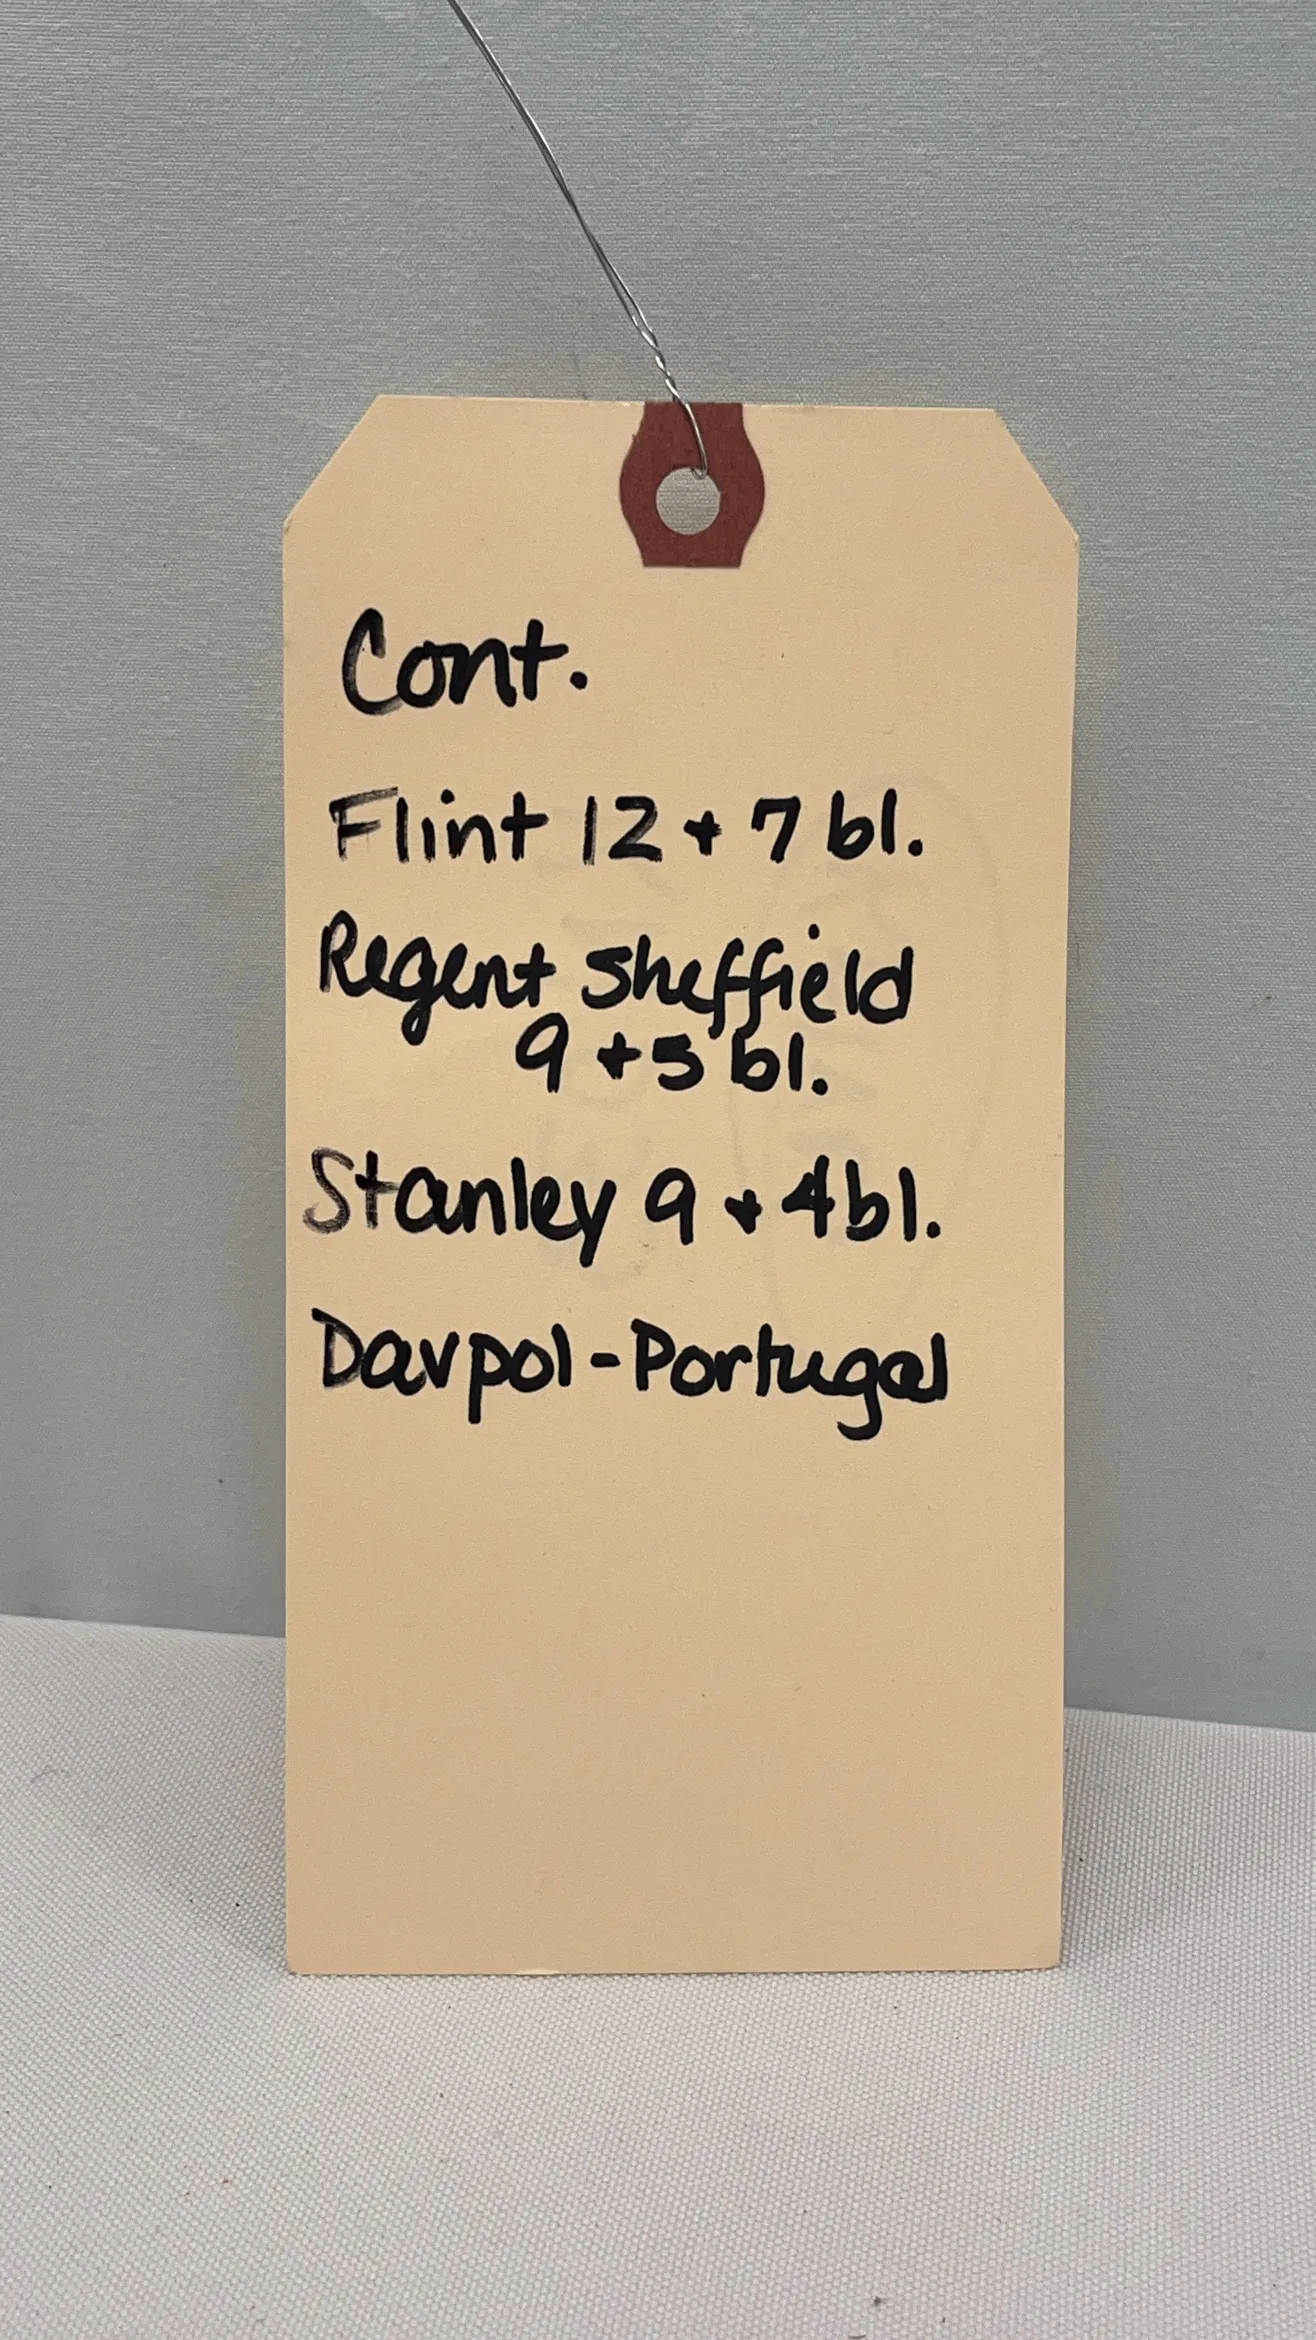 Cont.
Flint 12 + 7 bl.
Regent Sheffield
9 + 5 bl.
Stanley 9 + 4 bl.
Davpol - Portugal